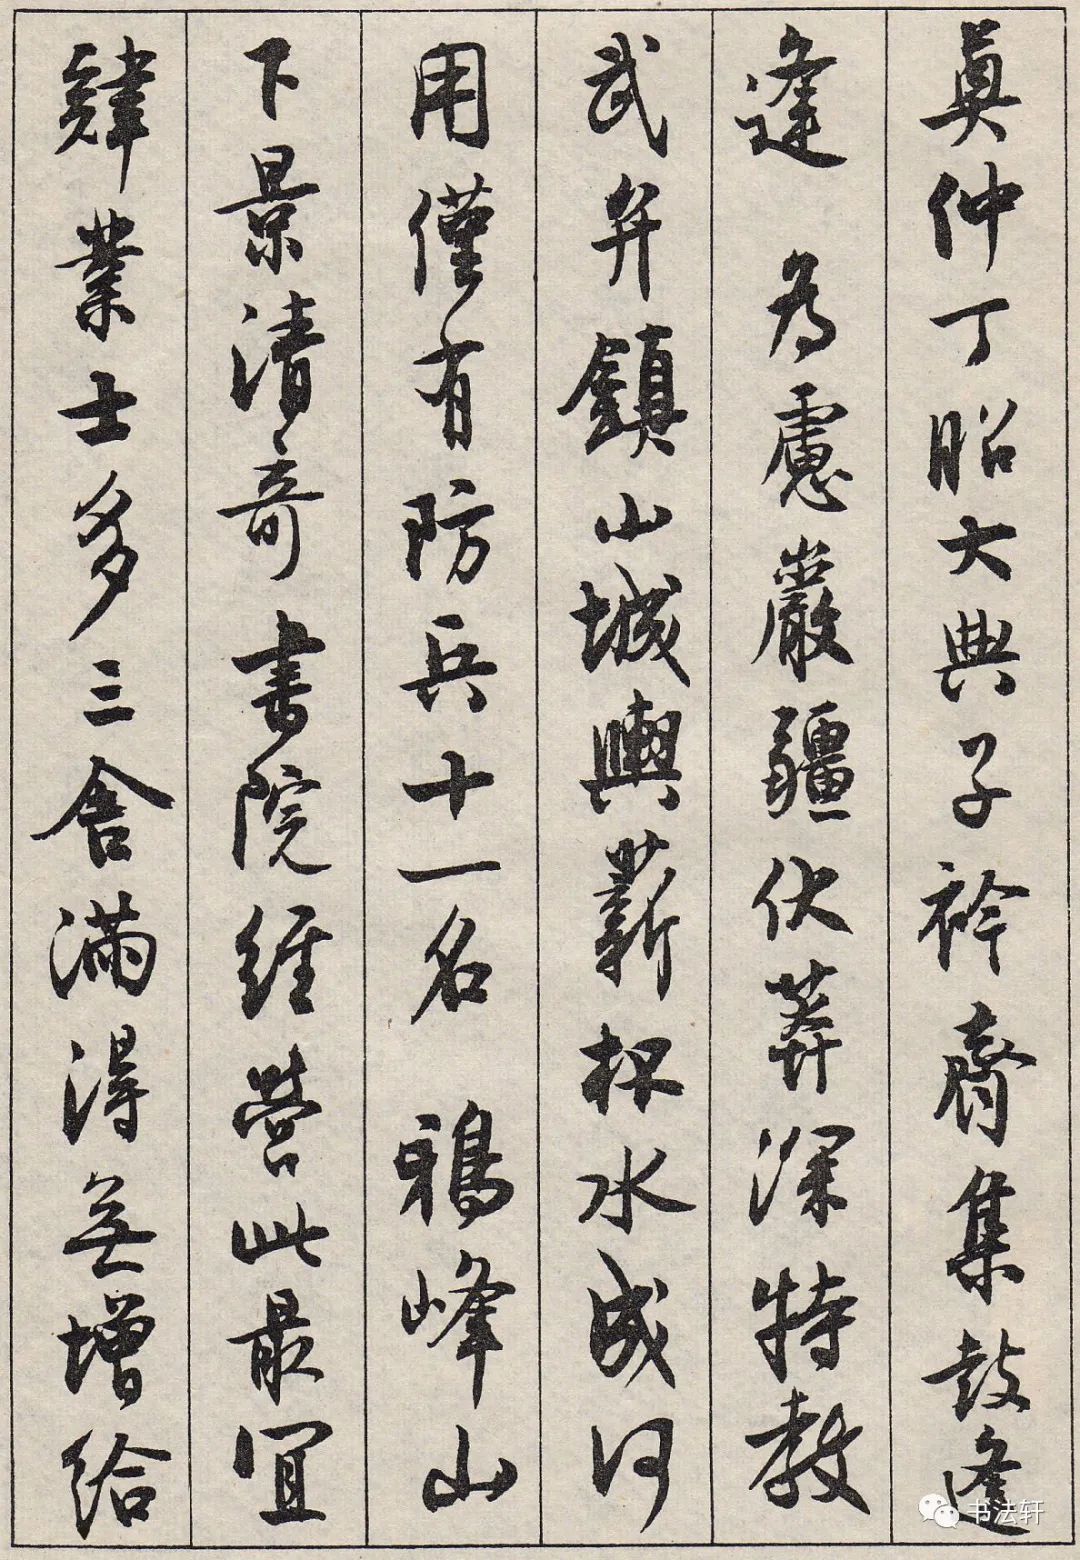 奠仲丁昭大典子衿齊集鼓逢
逢 為慮巖疆伏莽深特教
武弁鎮山城輿薪杯水成何
用僅有防兵十一名 鴉峰山
下景清奇書院經營此最宜
肄業士多三舍滿得無增給
书法轩